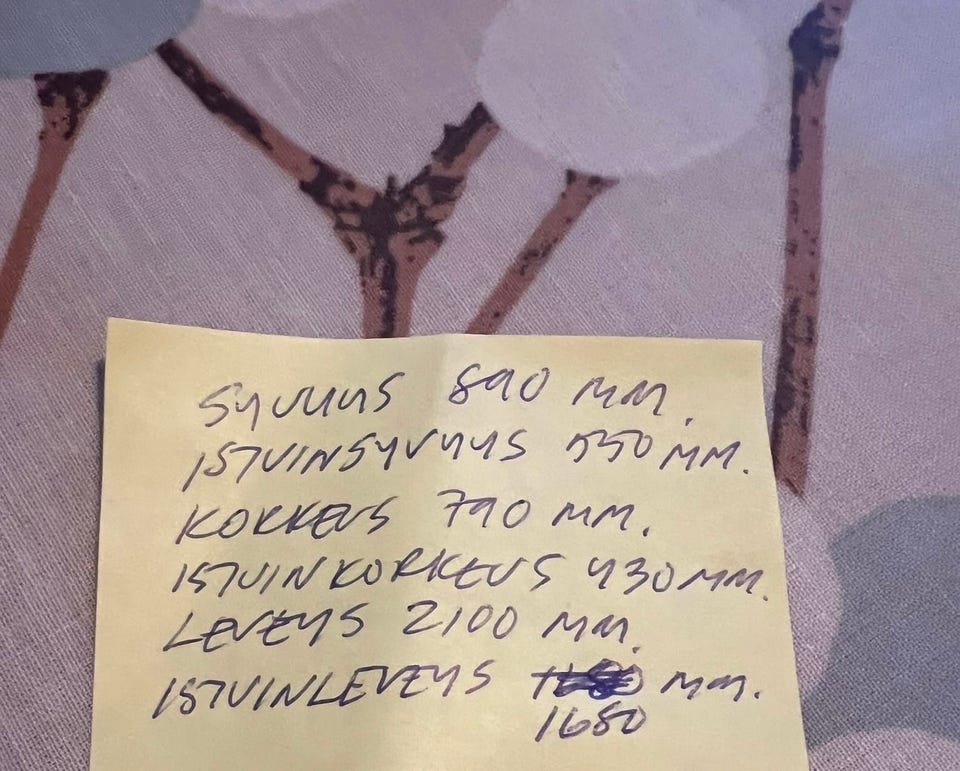 SYVYYS 890 MM.
ISTUINSYVYYS 550 MM.
KORKEUS 790 MM.
ISTUINKORKEUS 430 MM.
LEVEYS 2100 MM.
ISTUINLEVEYS MM.
1680